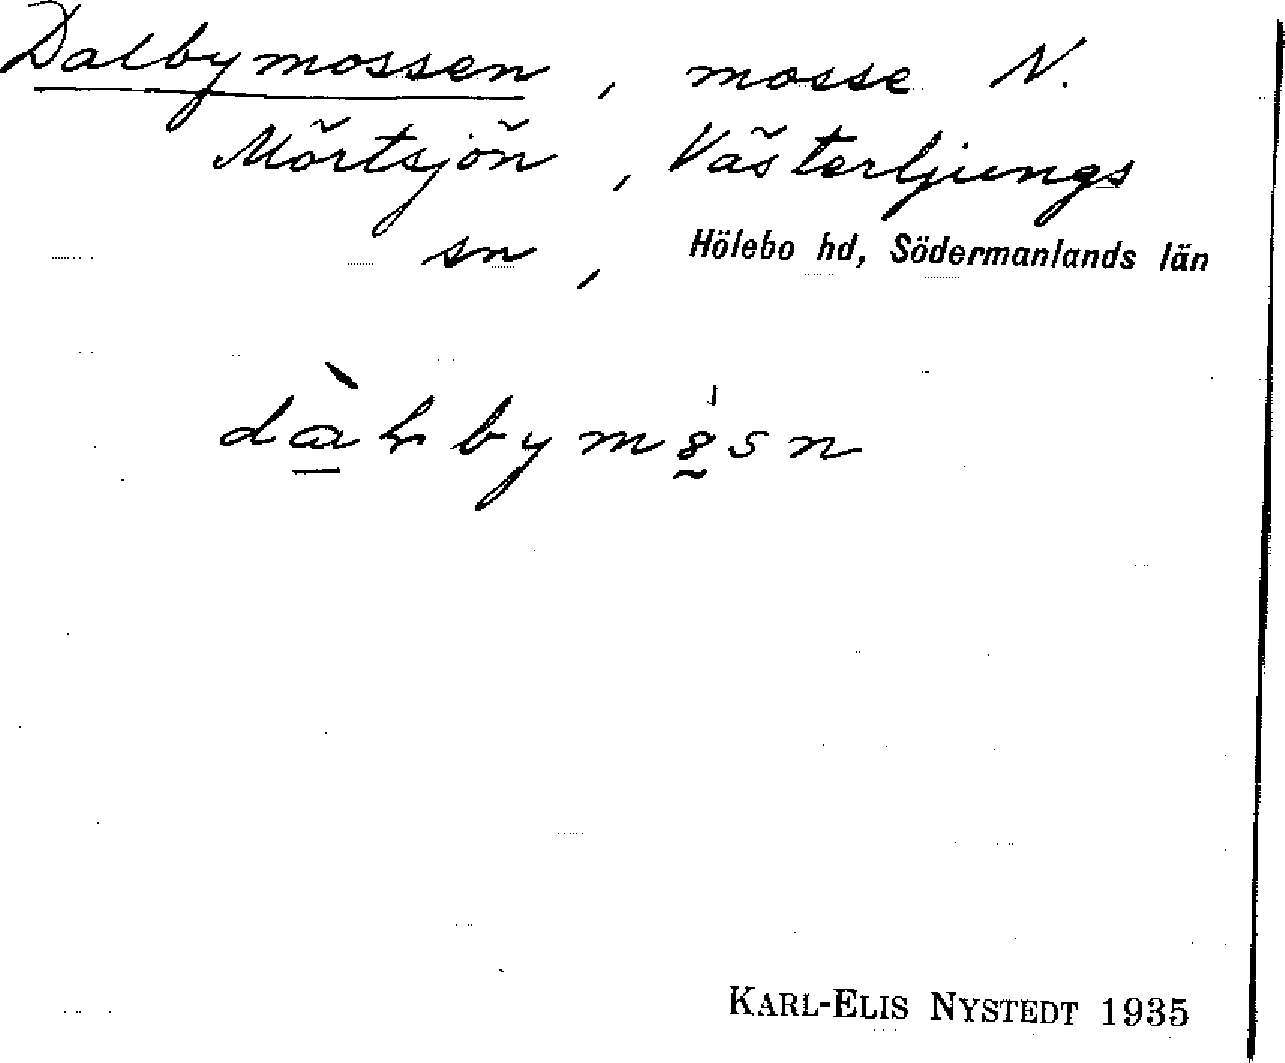 Dalbymossen, mosse N.
Mörtsjön, Västerljungs
sn, Hölebo hd, Södermanlands län
KARL-ELIS NYSTEDT 1935